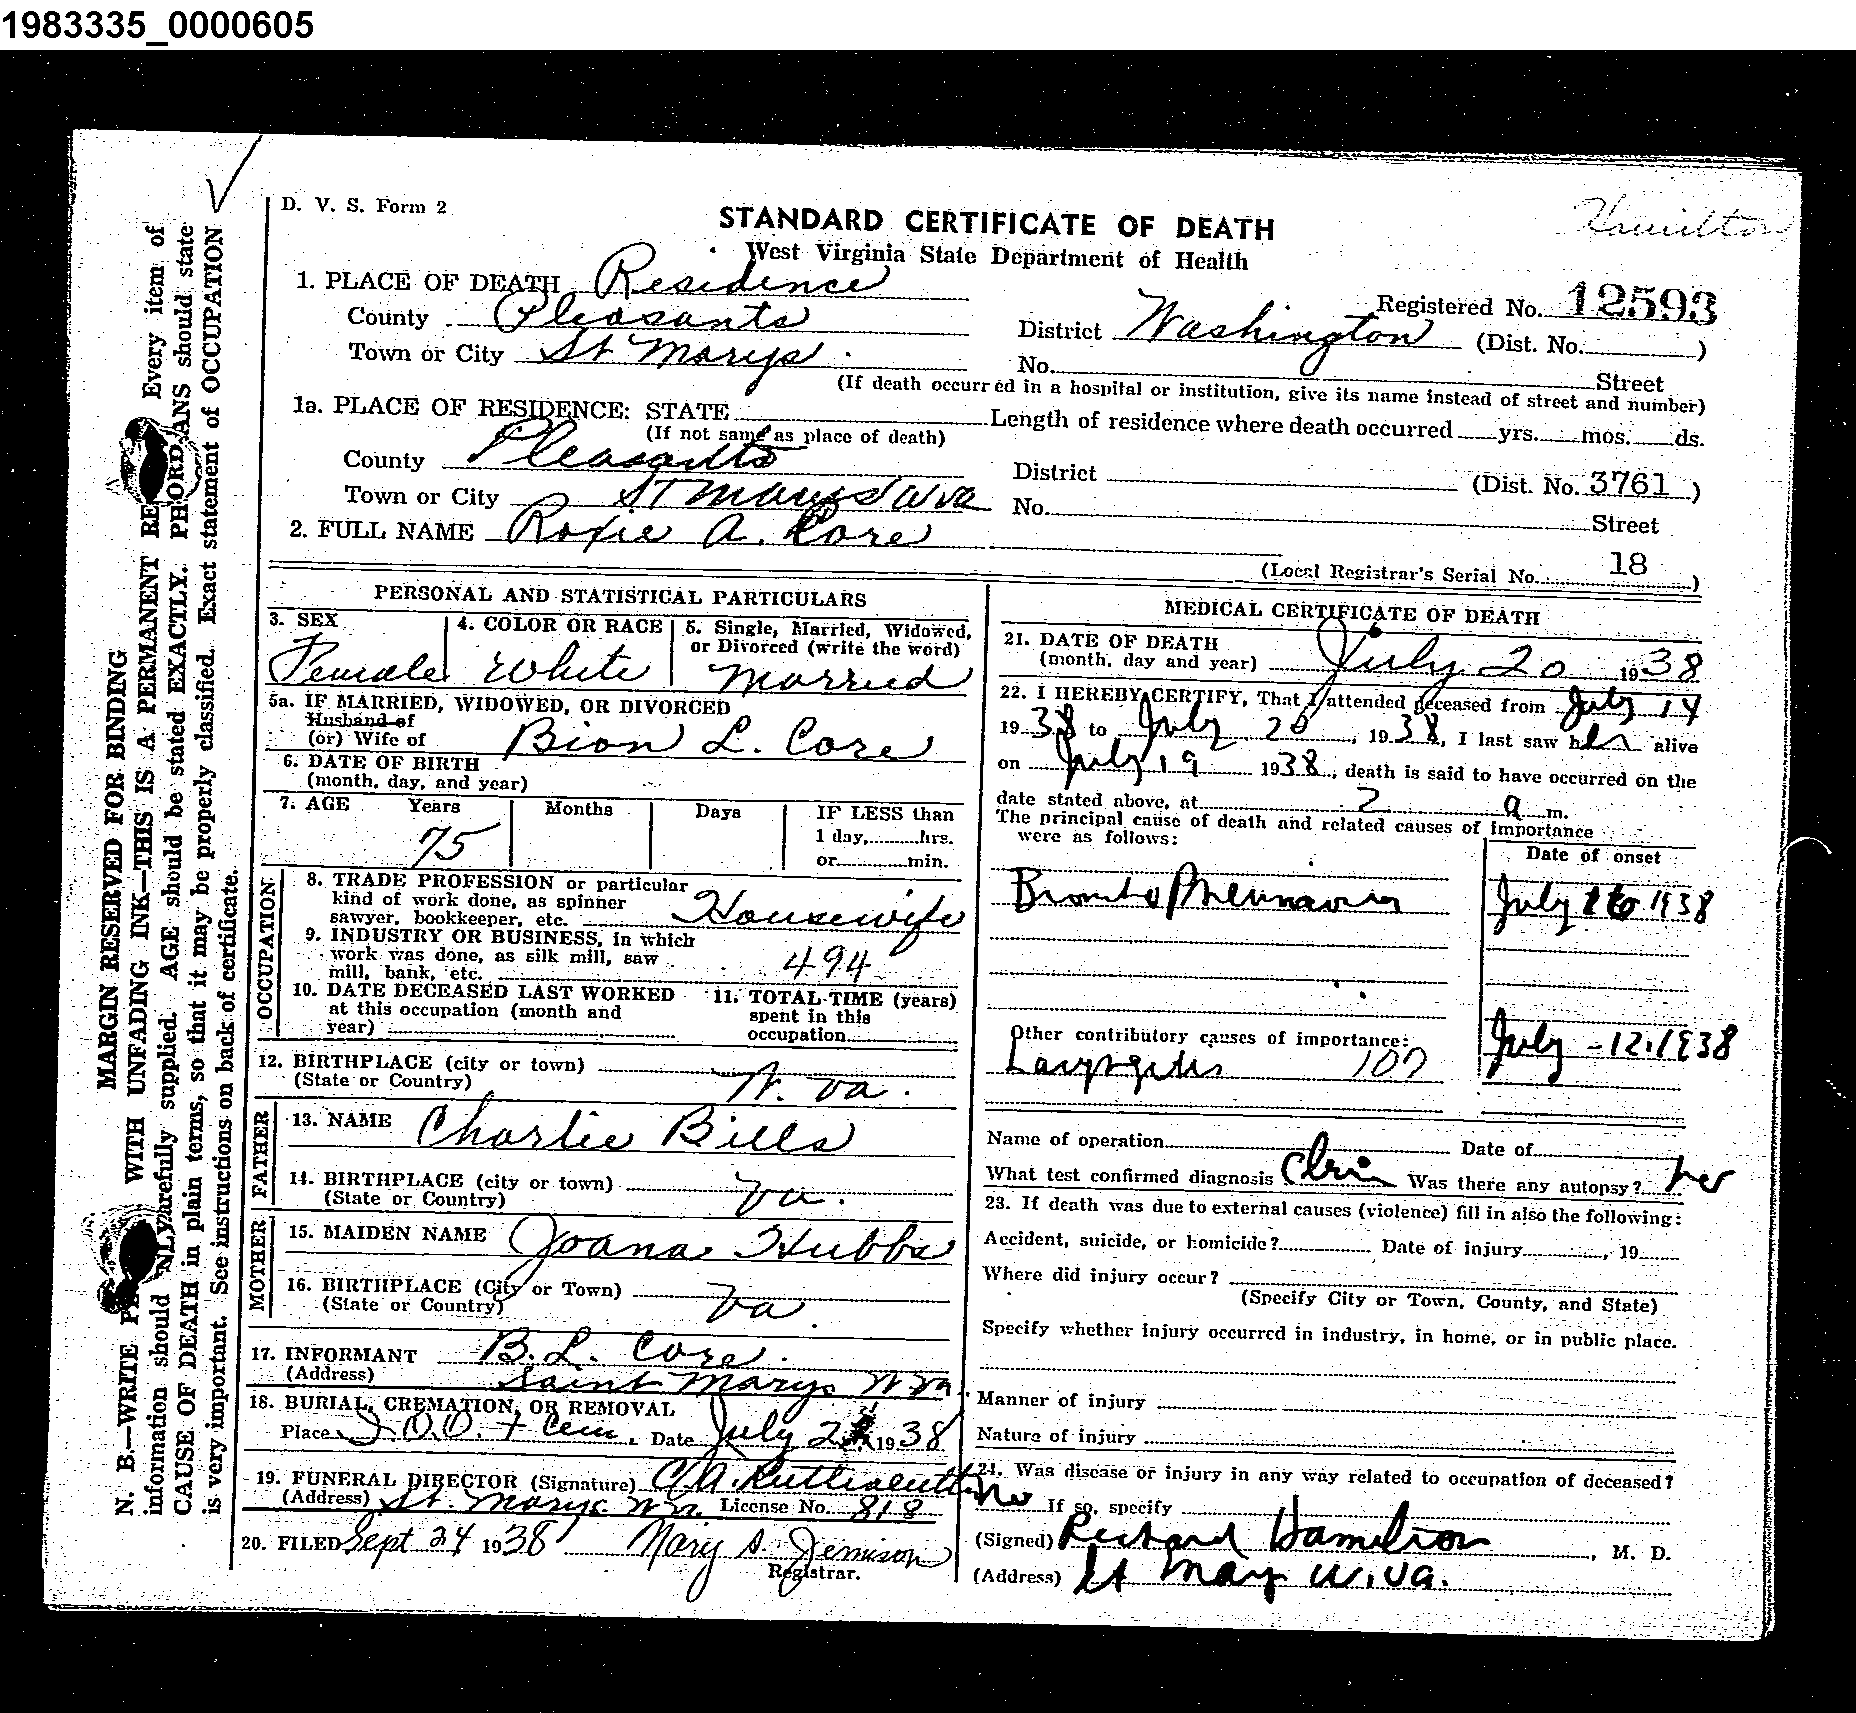 1983335_0000605
D. V. S. Form 2
Hamilton
STANDARD CERTIFICATE OF DEATH
West Virginia State Department of Health
1. PLACE OF DEATH Residence
Registered No. 12593
County Pleasants
District Washington (Dist. No. )
Town or City St Marys
No. Street
(If death occurred in a hospital or institution, give its name instead of street and number)
1a. PLACE OF RESIDENCE: STATE
(If not same as place of death)
Length of residence where death occurred yrs. mos. ds.
County Pleasants
District (Dist. No. 3761 )
Town or City St Marys W Va
No. Street
2. FULL NAME Roxie A. Core
(Local Registrar's Serial No. 18 )
PERSONAL AND STATISTICAL PARTICULARS
3. SEX
Female
4. COLOR OR RACE
White
5. Single, Married, Widowed,
or Divorced (write the word)
Married
5a. IF MARRIED, WIDOWED, OR DIVORCED
Husband of
(or) Wife of Bion L. Core
6. DATE OF BIRTH
(month, day, and year)
7. AGE Years Months Days IF LESS than
1 day, hrs.
or min.
75
OCCUPATION
8. TRADE PROFESSION or particular
kind of work done, as spinner
sawyer, bookkeeper, etc. Housewife
9. INDUSTRY OR BUSINESS, in which
work was done, as silk mill, saw
mill, bank, etc. 494
10. DATE DECEASED LAST WORKED
at this occupation (month and
year)
11. TOTAL TIME (years)
spent in this
occupation
12. BIRTHPLACE (city or town)
(State or Country) W. Va.
FATHER
13. NAME Charlie Bills
14. BIRTHPLACE (city or town)
(State or Country) Va.
MOTHER
15. MAIDEN NAME Joana Hubbs
16. BIRTHPLACE (City or Town)
(State or Country) Va.
17. INFORMANT B. L. Core
(Address) Saint Marys W Va.
18. BURIAL, CREMATION, OR REMOVAL
Place I.O.O.F Cem. Date July 1938
19. FUNERAL DIRECTOR (Signature) C.A.
(Address) St. Marys W Va. License No. 818
20. FILED Sept 24 1938 Mary S. Jemison
Registrar.
MEDICAL CERTIFICATE OF DEATH
21. DATE OF DEATH
(month, day and year) July 20 1938
22. I HEREBY CERTIFY, That I attended deceased from July 14
1938 to July 20, 1938, I last saw her alive
on July 19 1938, death is said to have occurred on the
date stated above, at 2 a m.
The principal cause of death and related causes of importance
were as follows:
Date of onset
Broncho Pneumonia July 16 1938
Other contributory causes of importance:
Laryngitis 107 July -12-1938
Name of operation Date of
What test confirmed diagnosis Clin Was there any autopsy? no
23. If death was due to external causes (violence) fill in also the following:
Accident, suicide, or homicide? Date of injury , 19
Where did injury occur?
(Specify City or Town, County, and State)
Specify whether injury occurred in industry, in home, or in public place.
Manner of injury
Nature of injury
24. Was disease or injury in any way related to occupation of deceased?
No If so, specify
(Signed) Richard Hamilton, M. D.
(Address) St Mary W. Va.
MARGIN RESERVED FOR BINDING
N. B.—WRITE WITH UNFADING INK—THIS IS A PERMANENT Every item of
information should carefully supplied. AGE should be stated EXACTLY. should state
CAUSE OF DEATH in plain terms, so that it may be properly classified. Exact statement of OCCUPATION
is very important. See instructions on back of certificate.